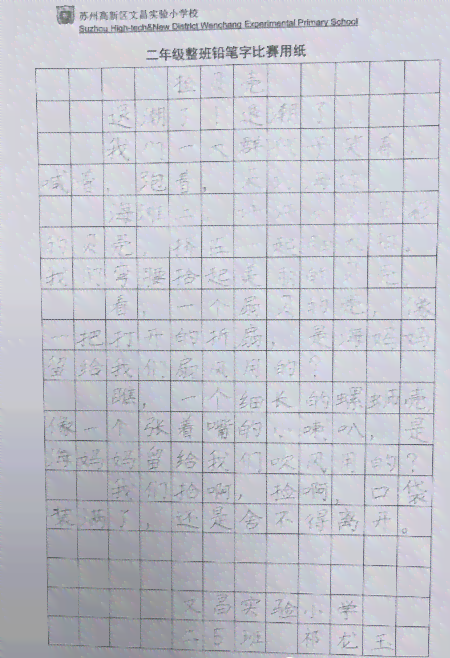 苏州高新区文昌实验小学校
Suzhou High-tech&New District Wenchang Experimental Primary School
二年级整班铅笔字比赛用纸
捡贝壳
退潮了！退潮了！
我们一大群伙伴笑着，
喊着，跑着，
海滩上，
的贝壳，挤在一起
我们弯腰拾起是的贝壳
看，一个扇贝的壳，像
一把打开的折扇，是海妈妈
留给我们扇风用的？
瞧，一个细长的螺蛳壳
像一个张着嘴的小喇叭，是
海妈妈留给我们吹风用的？
我们拾啊，捡啊，口袋
装满了，还是舍不得离开。
文昌实验小学
二5班 祁龙玉